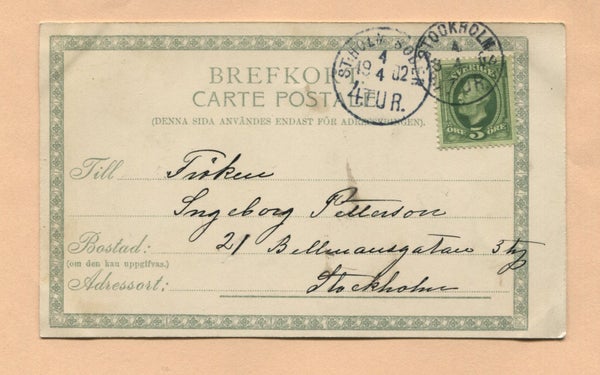 BREFKO
CARTE POSTALE
(DENNA SIDA ANVÄNDES ENDAST FÖR ADRESSERINGEN).
ST.HOLM SÖDER
4
19 4 02
4 TUR.
STOCKHOLM
4
TUR.
SVERIGE
ÖRE 5 ÖRE
Till Fröken
Ingeborg Petterson
Bostad: 21 Bellmansgatan 3 tr
(om den kan uppgifvas.)
Adressort: Stockholm